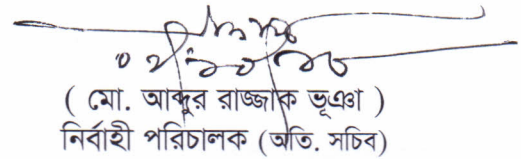 ( মো. আব্দুর রাজ্জাক ভূঞা )
নির্বাহী পরিচালক (অতি. সচিব)